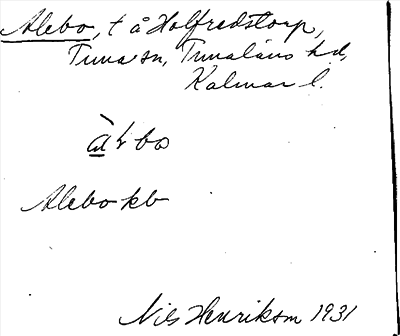 Alebo, t å Holfredstorp,
Tuna sn, Tunaläns hd,
Kalmar l.
Alebo kb
Nils Henrikson 1931